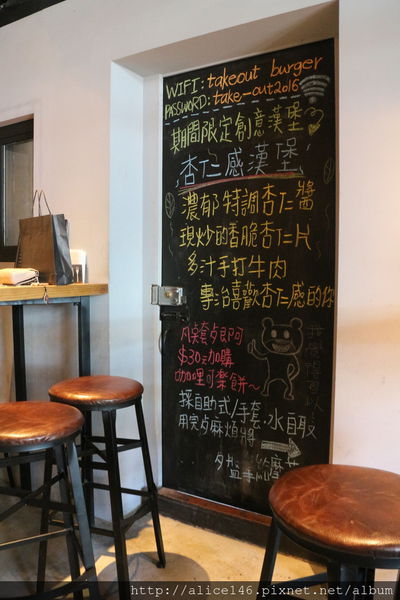 WIFI: takeout burger
PASSWORD: take-out2016
期間限定創意漢堡
杏仁感漢堡
濃郁特調杏仁醬
現炒的香脆杏仁片
多汁手打牛肉
專治喜歡杏仁感的你
凡桌套歺即可
$30元加購
咖哩可樂餅~
採自助式/手套.水自取
用完歺麻煩將
http://alice146.pixnet.net/album